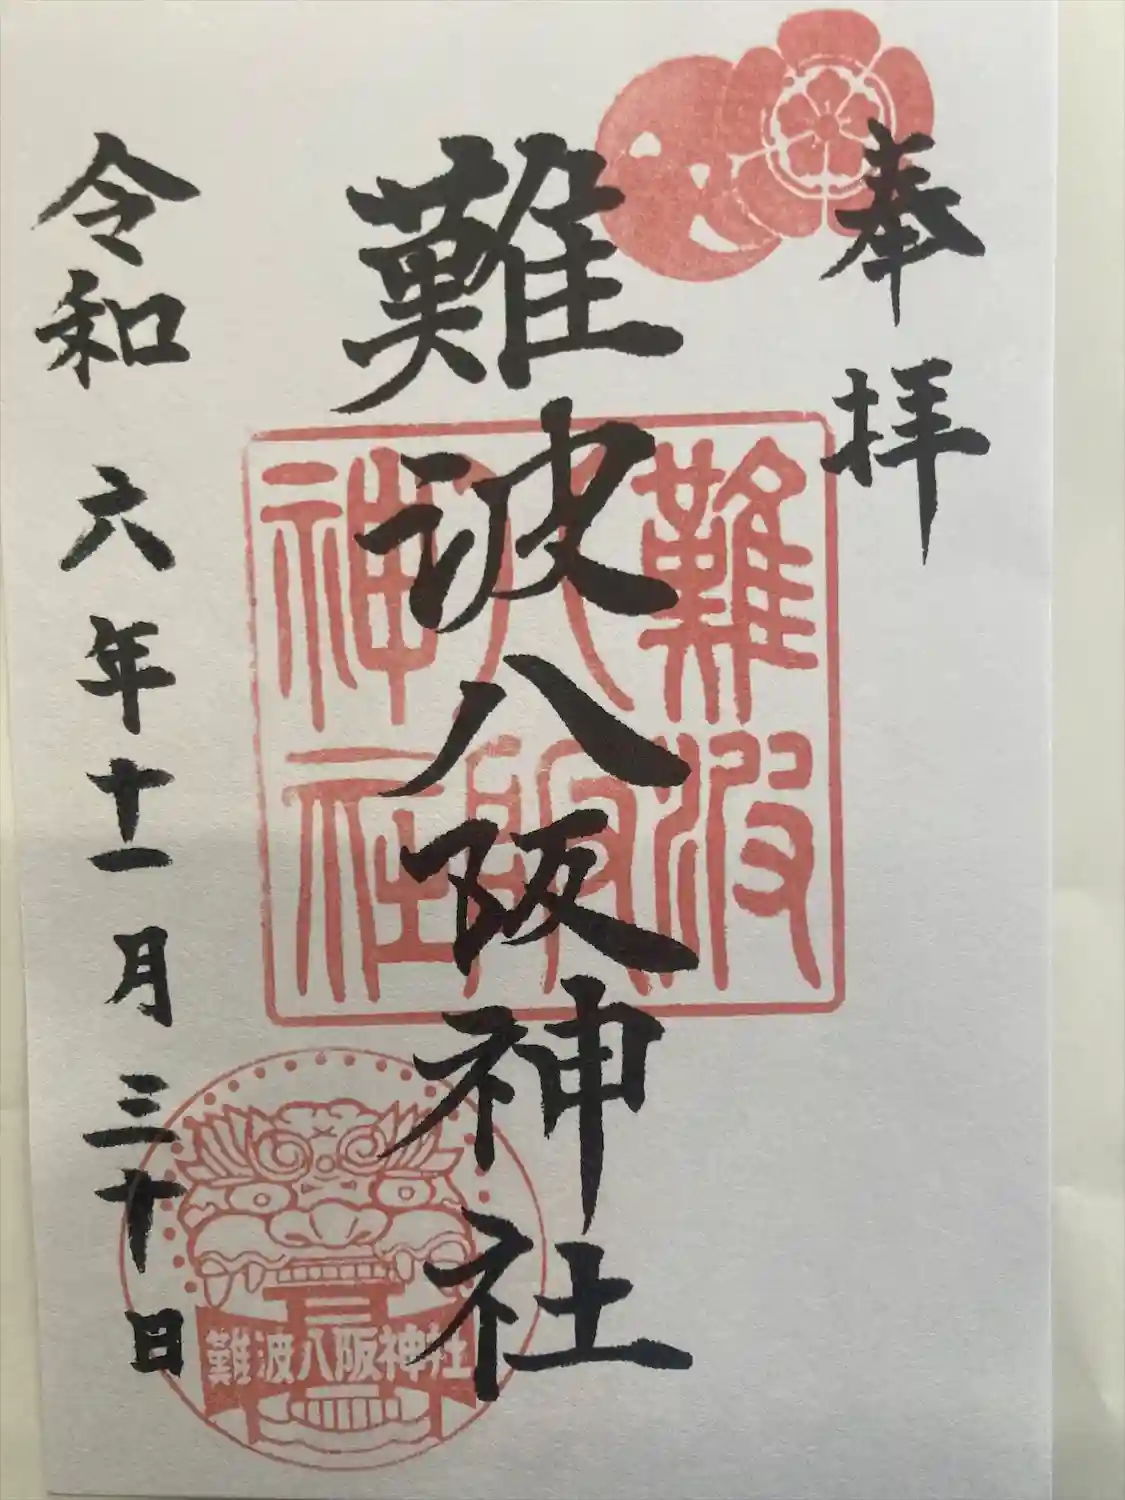 奉拝
難波八阪神社
令和六年十一月三十日
難波八阪神社
難波八阪神社